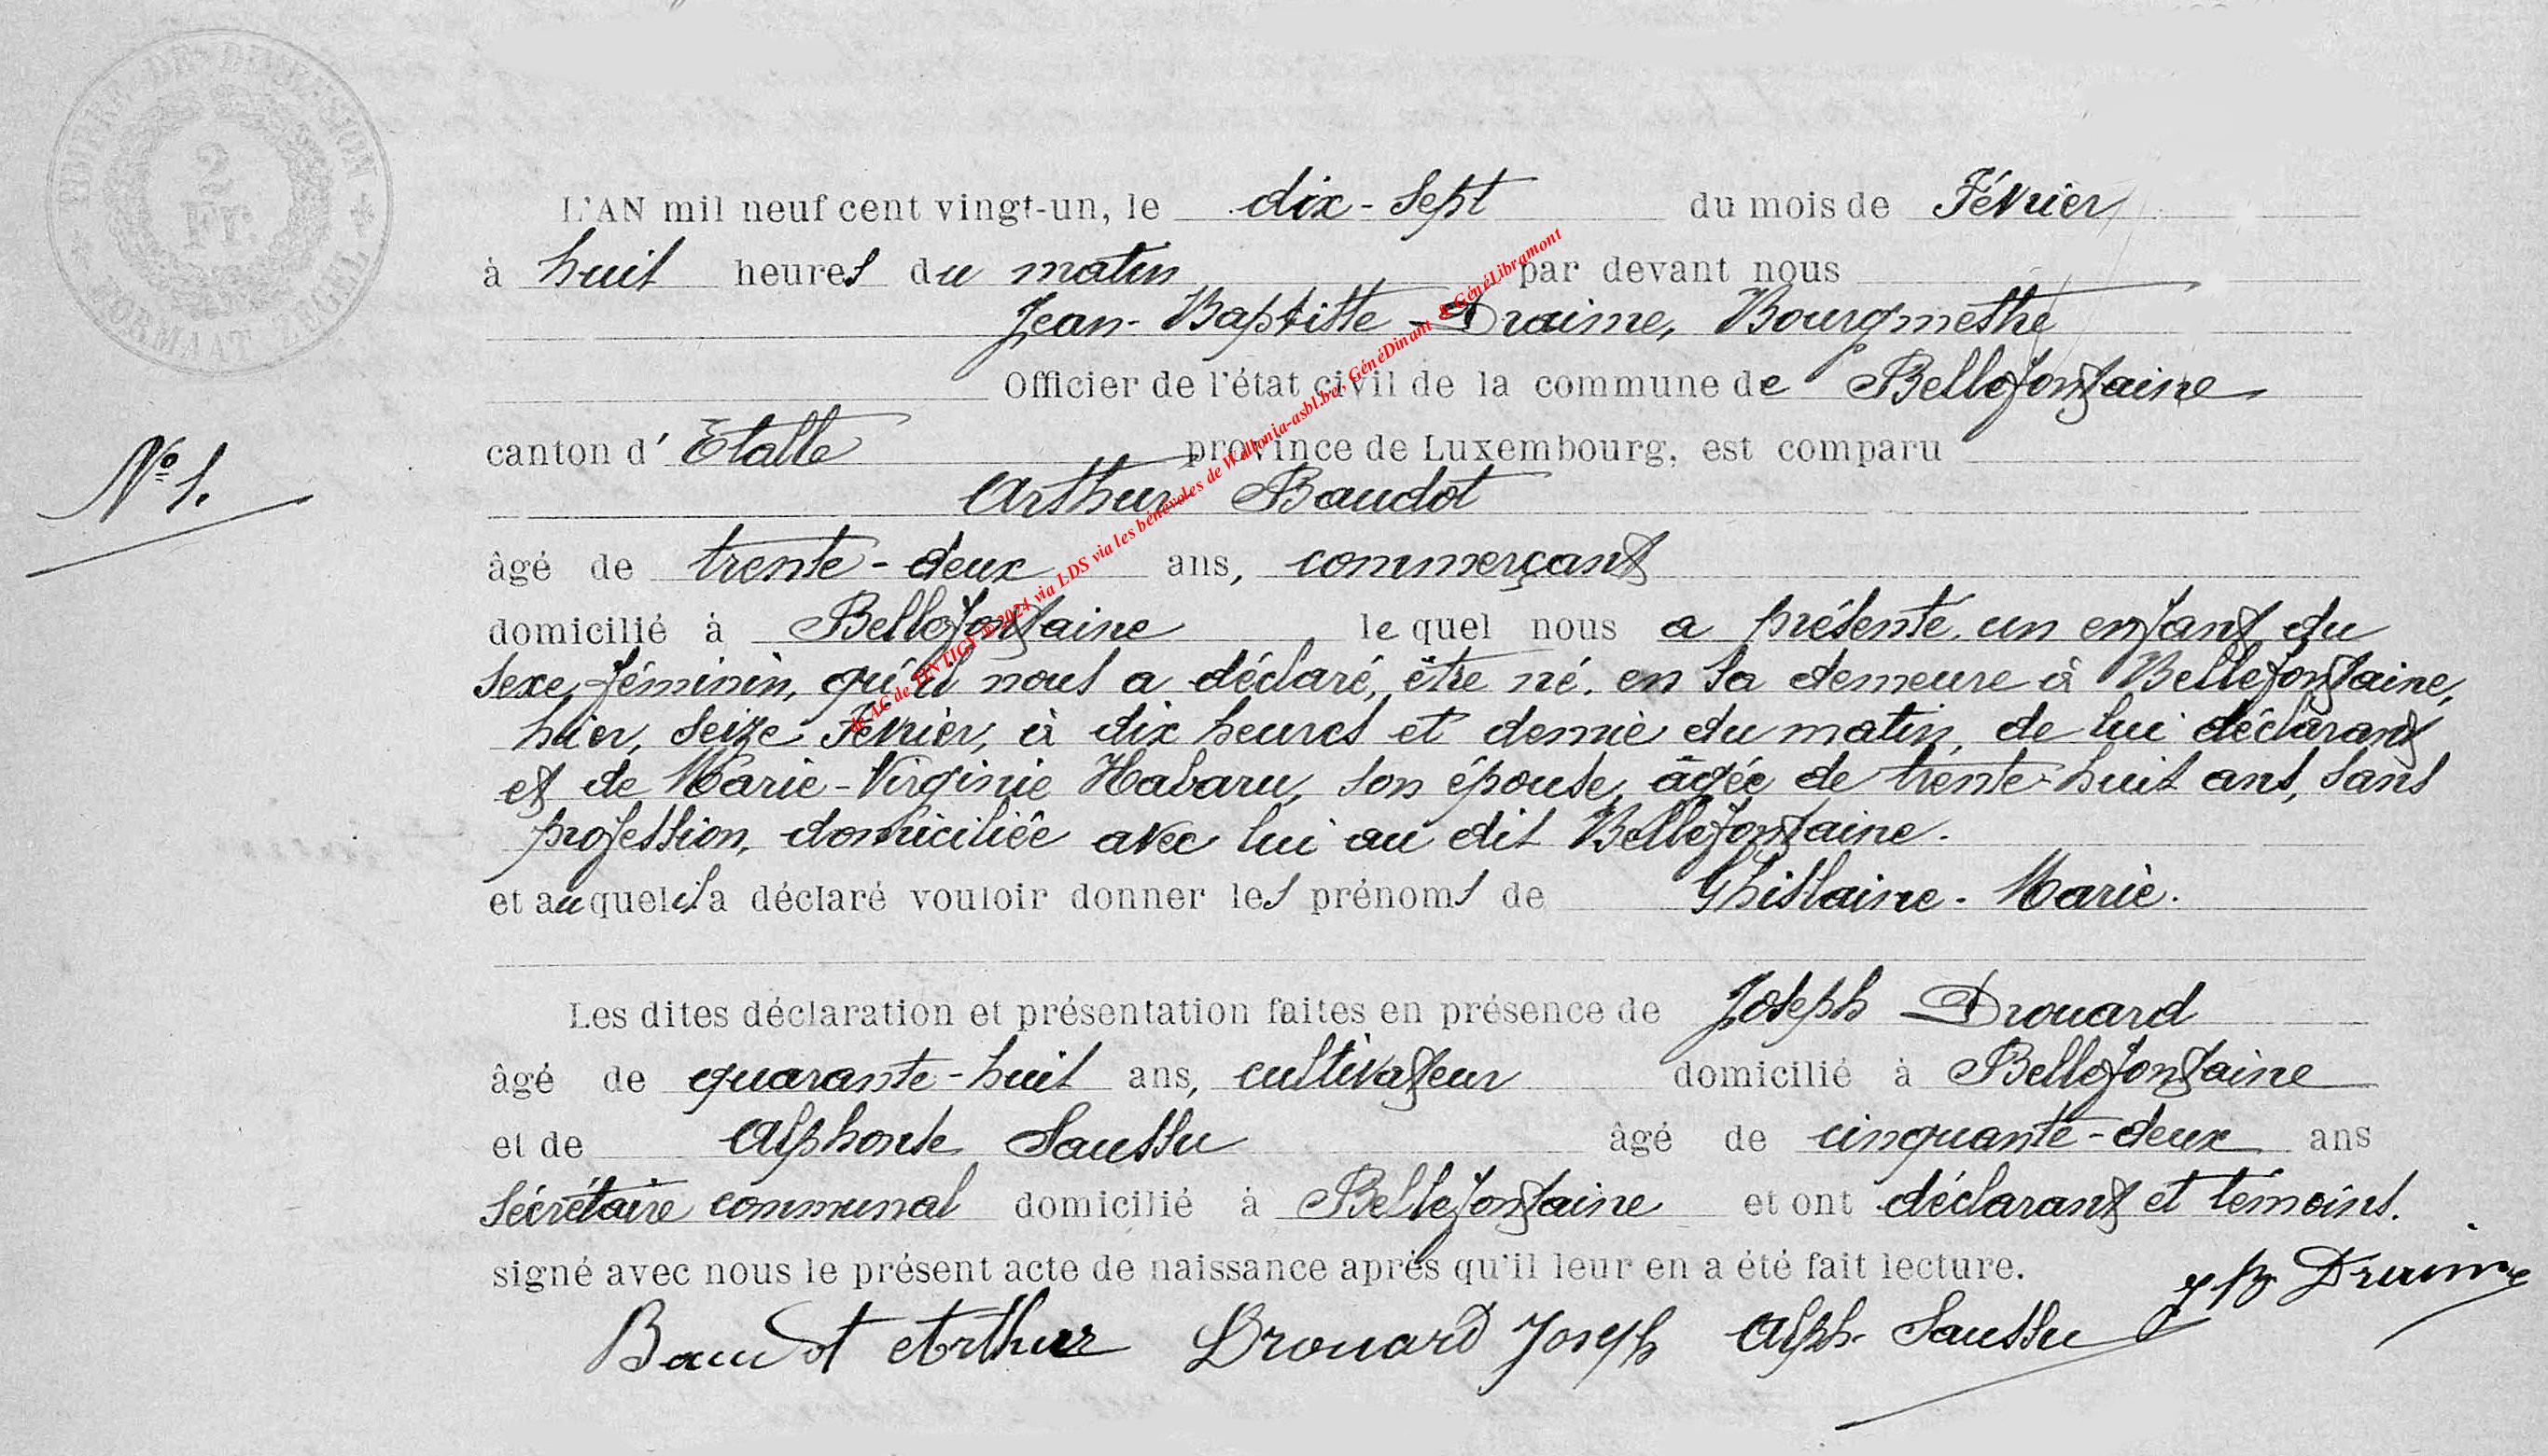 TIMBRE DE DIMENSION
2
Fr
FORMAAT ZEGEL
L'AN mil neuf cent vingt-un, le dix-sept du mois de Février
à huit heures du matin par devant nous
Jean-Baptiste Draime, Bourgmestre
Officier de l'état civil de la commune de Bellefontaine
canton d' Etalle province de Luxembourg, est comparu
N° 1.
Arthur Baudot
âgé de trente-deux ans, commerçant
domicilié à Bellefontaine lequel nous a présenté un enfant du
sexe féminin, qu'il nous a déclaré, être né en sa demeure à Bellefontaine,
hier, seize Février, à dix heures et demie du matin, de lui déclarant
et de Marie-Virginie Habaru, son épouse, âgée de trente-huit ans, sans
profession, domiciliée avec lui au dit Bellefontaine.
et auquel il a déclaré vouloir donner les prénoms de Ghislaine-Marie.
Les dites déclaration et présentation faites en présence de Joseph Drouard
âgé de quarante-huit ans, cultivateur domicilié à Bellefontaine
et de Alphonse Saussu âgé de cinquante-deux ans
sécrétaire communal domicilié à Bellefontaine et ont déclarant et témoins.
signé avec nous le présent acte de naissance après qu'il leur en a été fait lecture.
Baudot Arthur Drouard Joseph Alph. Saussu JB Draime
de AC de TINTIGY © 2024 via LDS via les bénévoles de Wallonia-asbl.be, GénéDinant & GénéLibramont